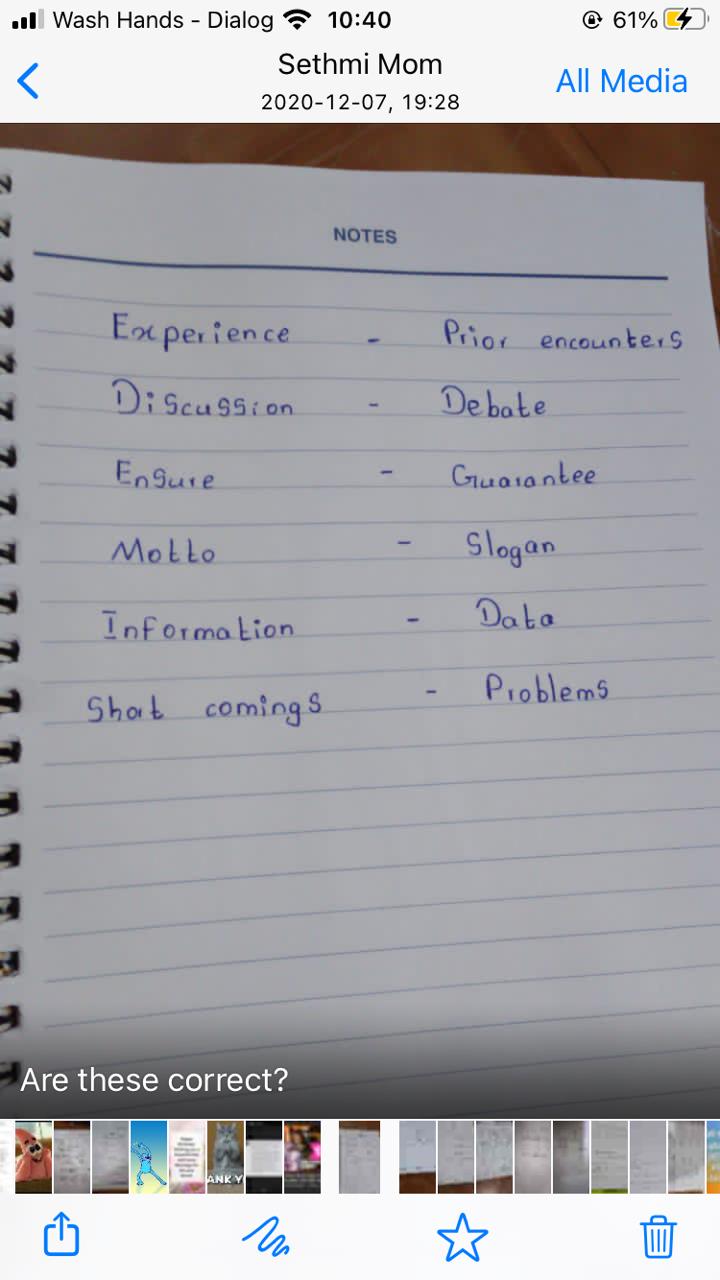 Wash Hands - Dialog 10:40 61%
Sethmi Mom
2020-12-07, 19:28
All Media
NOTES
Experience - Prior encounters
Discussion - Debate
Ensure - Guarantee
Motto - Slogan
Information - Data
Short comings - Problems
Are these correct?
ANKY